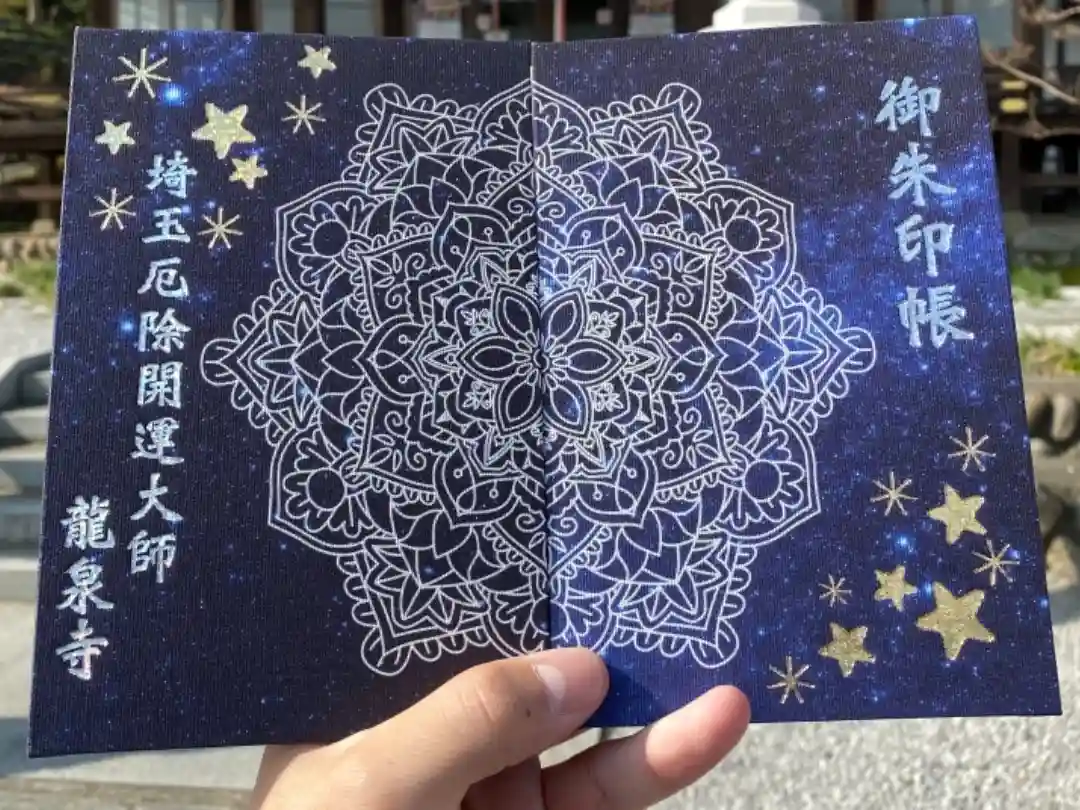 御朱印帳
埼玉厄除開運大師
龍泉寺